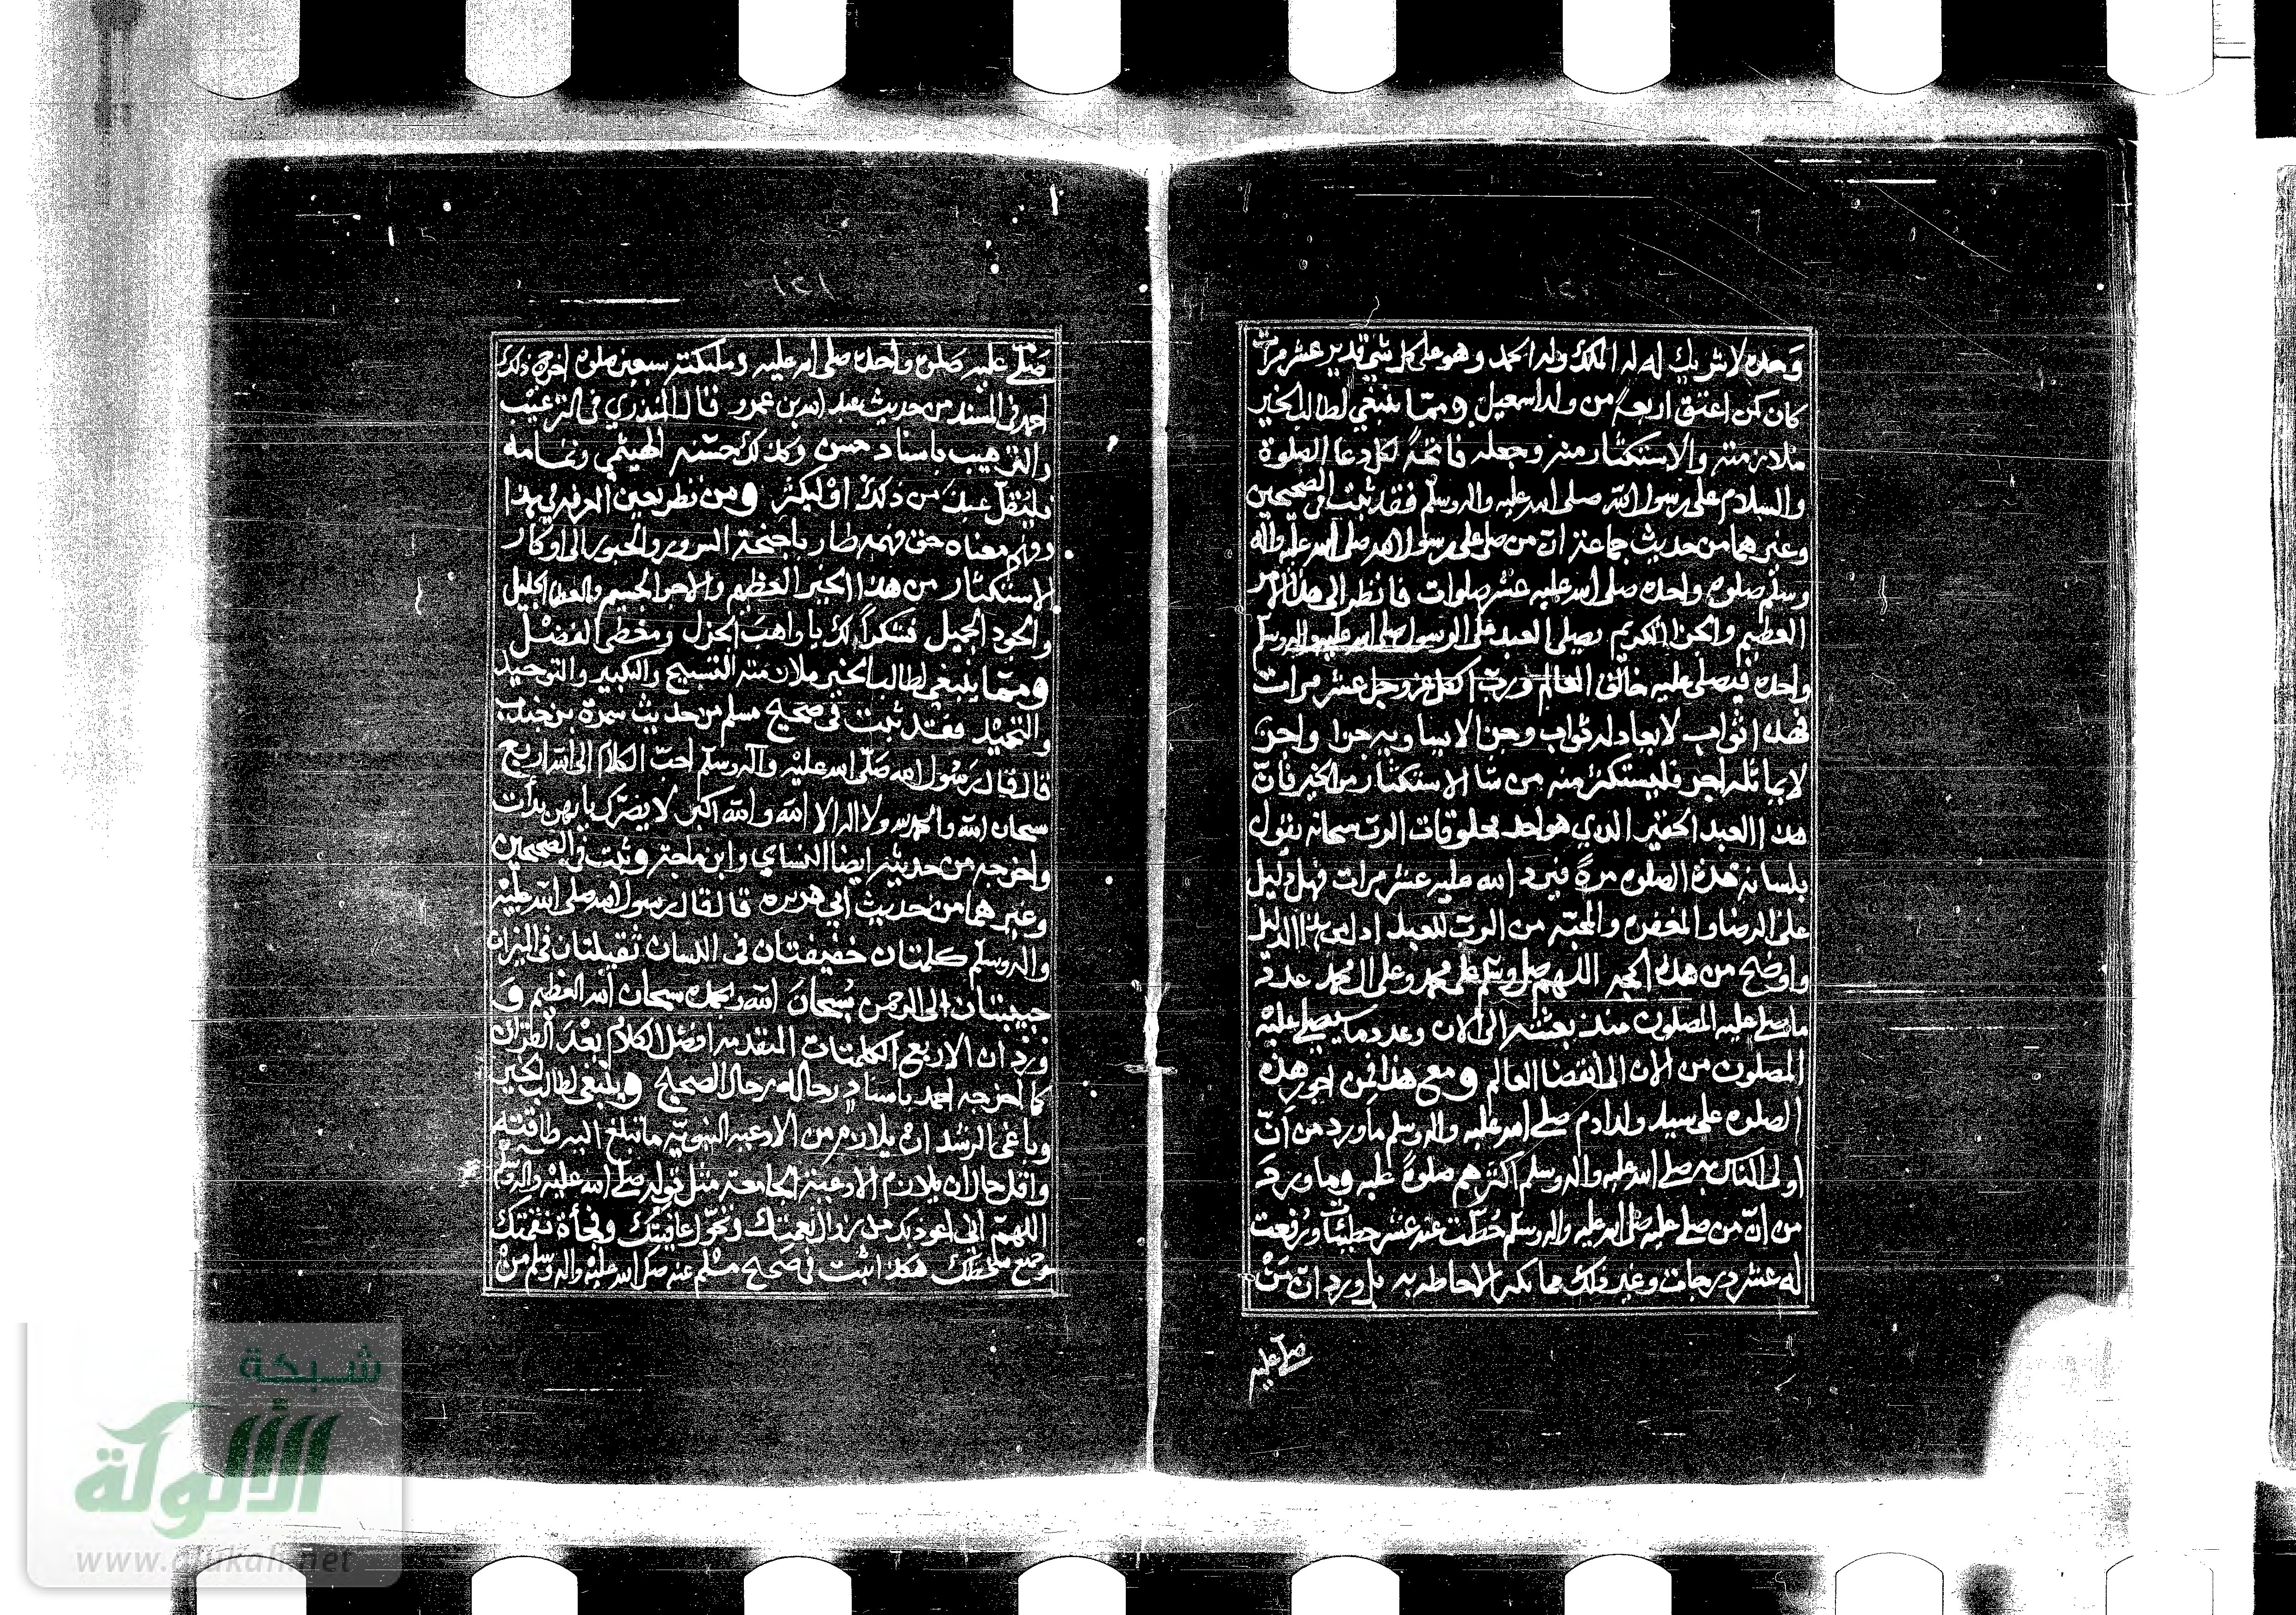 وحده لا شريك له له الملك وله الحمد وهو على كل شي قدير عشر مرات
كان كمن اعتق اربعة من ولد اسمعيل ومما ينبغي لطالب الخير
ملازمته والاستكثار منه وجعله فاتحة لكل دعا الصلوة
والسلام على رسول الله صلى الله عليه واله وسلم فقد ثبت في الصحيحين
وغيرهما من حديث جماعة انّ من صلى على رسول الله صلى الله عليه واله
وسلم صلوة واحدة صلى الله عليه عشر صلوات فانظر الى هذا الامر
العظيم والجزا الكريم يصلي العبد على الرسول صلى الله عليه واله وسلم
واحدة فيصلي عليه خالق العالم وربّ الكل عز وجل عشر مرات
فهذا ثواب لا يعادله ثواب وجزا لا يساويه جزا واجر
لا يماثله اجر فليستكثر منه من شا الاستكثار من الخير فانّ
هذا العبد الحقير الذي هو احد مخلوقات الربّ سبحانه يقول
بلسانه هذه الصلوة مرةً فيرد الله عليه عشر مرات فهل دليل
على الرضا والمغفرة والمحبّة من الربّ للعبد ادل من هذا الدليل
واوضح من هذه الحجة اللهم صل وسلم على محمد وعلى ال محمد عدد
ما صلى عليه المصلون منذ بعثته الى الان وعدد ما يصلي عليه
المصلون من الان الى انقضا العالم ومع هذا فمن اجور هذه
الصلوة على سيد ولد ادم صلى الله عليه واله وسلم ما ورد من انّ
اولى الناس به صلى الله عليه واله وسلم اكثرهم صلوةً عليه وما ورد
من انّ من صلى عليه صلى الله عليه واله وسلم حُطّت عنه عشر خطيئات ورُفعت
له عشر درجات وغير ذلك مما يكثر الاحاطه به بل ورد انّ مَنْ
صلى عليه
١٢١
صَلّى عليه صلوة واحدة صلى الله عليه وملئكته سبعين صلوة اخرج ذلك
احمد في المسند من حديث عبد الله بن عمرو قال المنذري في الترغيب
والترهيب باسناد حسن وكذلك حسّنه الهيثمي وتمامه
فليقلّ عبدٌ من ذلك او ليكثر ومن نظر بعين المعرفة في هذا
وفهم معناه حق فهمه طار باجنحة السرور والحبور الى اوكار
الاستكثار من هذا الخير العظيم والاجر الجسيم والعطا الجليل
والجود الجميل فشكراً لك يا واهب الجزل ومعطي الفضل
ومما ينبغي لطالب الخير ملازمته التسبيح والتكبير والتوحيد
والتحميد فقد ثبت في صحيح مسلم من حديث سمرة بن جندب
قال قال رسول الله صلى الله عليه وآله وسلم احبّ الكلام الى الله اربع
سبحان الله والحمد لله ولا اله الا الله والله اكبر لا يضرّك بايهن بدأت
واخرجه من حديثه ايضا النساي وابن ماجة وثبت في الصحيحين
وغيرهما من حديث ابي هريرة قال قال رسول الله صلى الله عليه
واله وسلم كلمتان خفيفتان في اللسان ثقيلتان في الميزان
حبيبتان الى الرحمن سُبحانَ الله وبحمده سبحان الله العظيم وَ
ورد ان الاربع الكلمات المتقدمه افضل الكلام بَعْدَ القرآن
كما اخرجه احمد باسناد رجاله رجال الصحيح وينبغي لطالب الخير
وباغي الرشد ان يلازم من الادعيه النبويّه ما تبلغ اليه طاقته
واقل حال ان يلازم الادعية الجامعة مثل قوله صلى الله عليه واله وسلم
اللهم اني اعوذ بك من زوال نعمتك وتحوّل عافيتك وفجأة نقمتك
وجميع سخطك هكذا ثبت في صحيح مسلم عنه صلى الله عليه واله وسلم منْ
شبكة
الألوكة
www.alukah.net